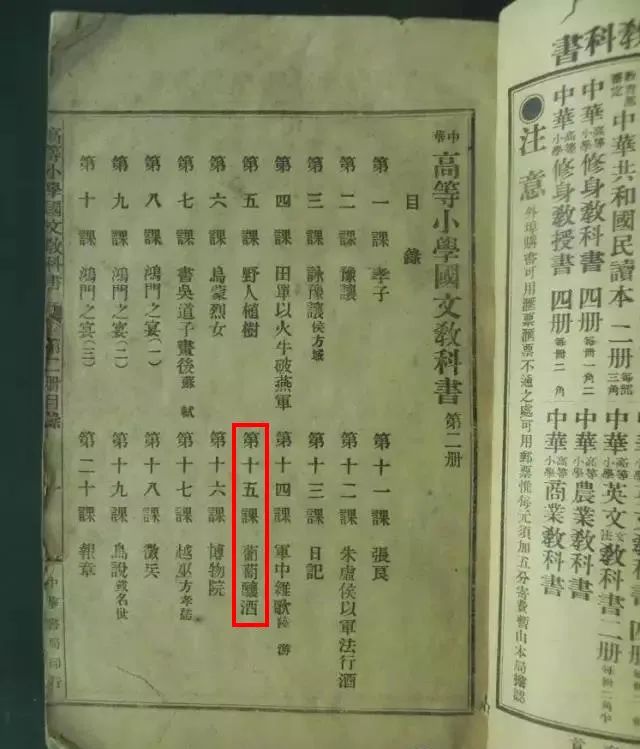 教科書
教育部審定 中華共和國民讀本 二冊 每部三角
中華高等小學修身教科書 四冊 每冊一角二
中華高等小學修身教授書 四冊 每冊二角
中華高等小學英文教科書二冊
中華高等小學農業教科書
中華高等小學商業教科書
●注意 外埠購書可用滙票滙票不通之處可用郵票惟每元須加五分寄費暫由本局擔認
中華高等小學國文教科書 第二册
目錄
第一課 季子
第二課 豫讓
第三課 詠豫讓 侯方域
第四課 田單以火牛破燕軍
第五課 野人植樹
第六課 烏蒙烈女
第七課 書吳道子畫後 蘇軾
第八課 鴻門之宴(一)
第九課 鴻門之宴(二)
第十課 鴻門之宴(三)
第十一課 張良
第十二課 朱虛侯以軍法行酒
第十三課 日記
第十四課 軍中雜歌 陸游
第十五課 葡萄釀酒
第十六課 博物院
第十七課 越巫 方孝孺
第十八課 徵兵
第十九課 鳥說 戴名世
第二十課 報章
高等小學國文教科書 第二册目錄
中華書局印行